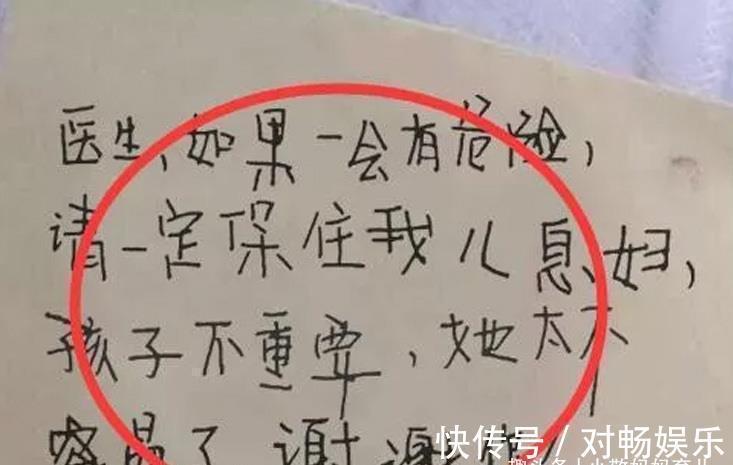 医生,如果一会有危险,
请一定保住我儿息妇,
孩子不重要,她太不
容易了,谢谢你
快传号/对畅娱乐